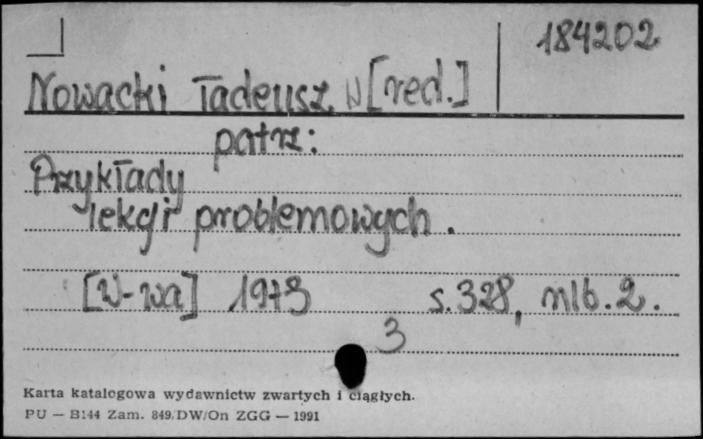 184202
Nowacki Tadeusz W [red.]
patrz:
Przykłady
lekcji problemowych.
[W-wa] 1973 s. 328, nlb. 2.
3
Karta katalogowa wydawnictw zwartych i ciągłych.
PU — B144 Zam. 849/DW/On ZGG — 1991